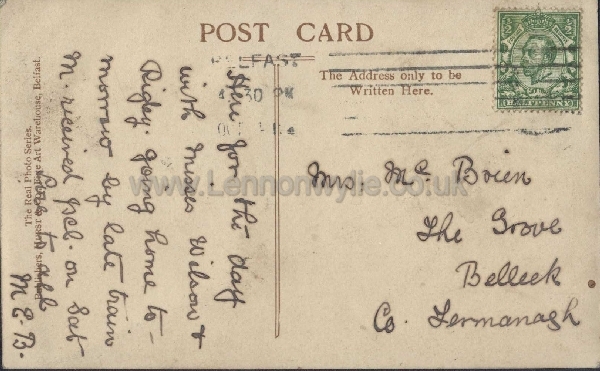 POST CARD
BELFAST
4.30 PM
The Address only to be
Written Here.
HALFPENNY
Here for the day
with Misses Wilson &
Rigby. going home to-
morrow by late train
M. received pcb. on Sat
Love to all
M E. B.
The Real Photo Series.
Art Warehouse, Belfast.
Mrs. Mc Brien
The Grove
Belleek
Co. Fermanagh
www.Lennonwylie.co.uk